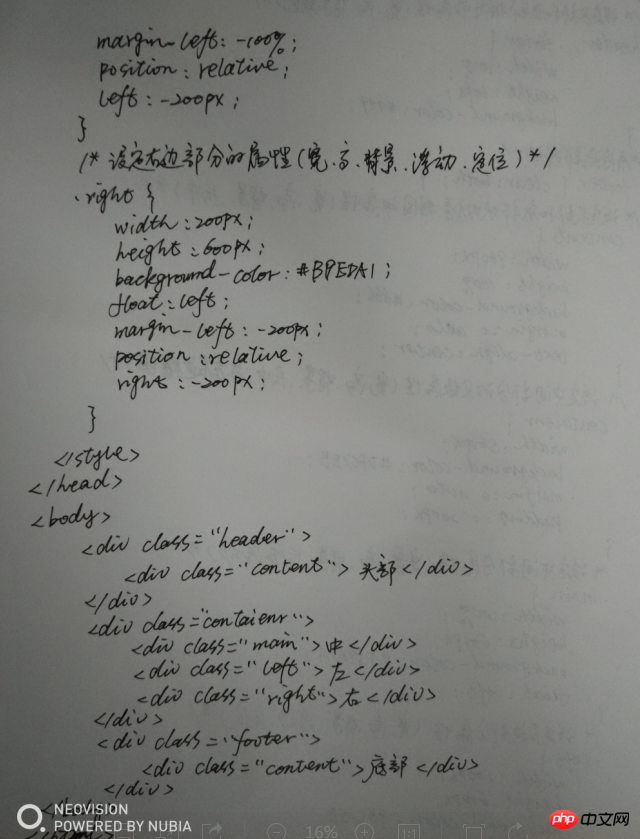 margin-left: -100%;
position: relative;
left: -200px;
}
/* 设定右边部分的属性(宽、高、背景、浮动、定位) */
.right {
width: 200px;
height: 600px;
float: left;
margin-left: -200px;
position: relative;
right: -200px;
}
</style>
</head>
<body>
<div class="header">
<div class="content">头部</div>
</div>
<div class="contaienr">
<div class="main">中</div>
<div class="left">左</div>
<div class="right">右</div>
</div>
<div class="footer">
<div class="content">底部</div>
</div>
NEOVISION
POWERED BY NUBIA
16%
php中文网